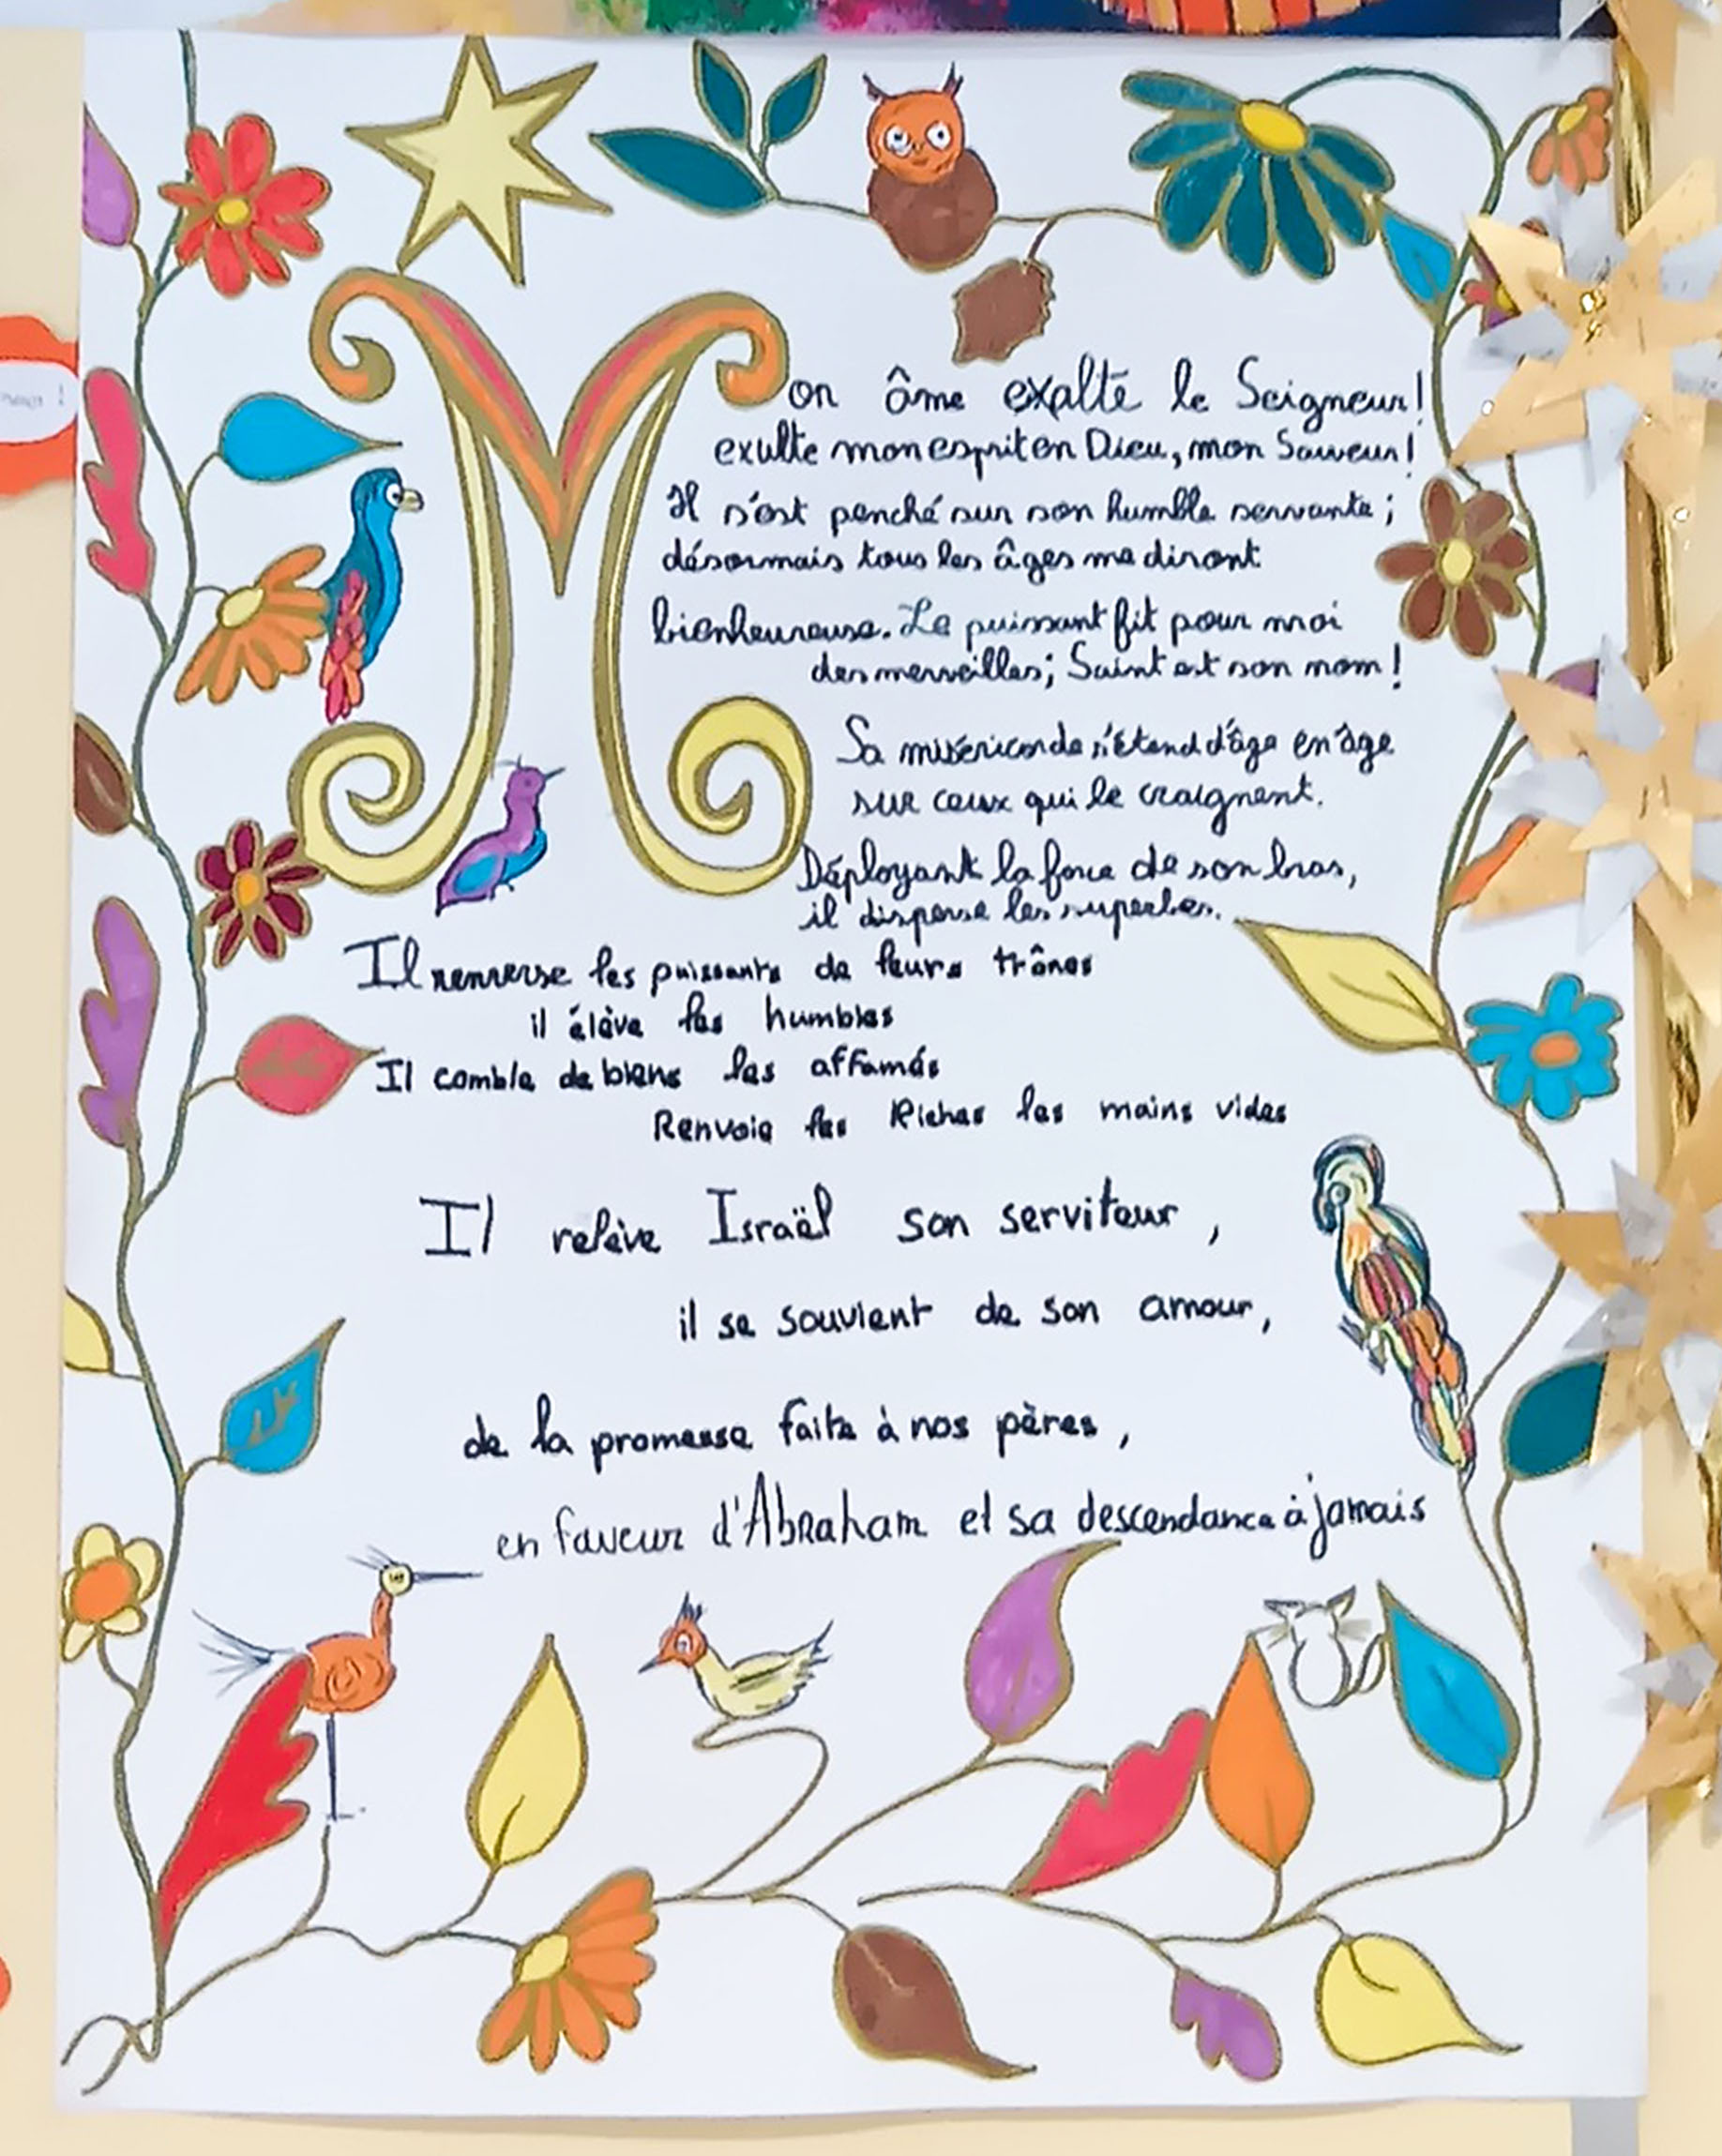 Mon âme exalte le Seigneur!
exulte mon esprit en Dieu, mon Sauveur!
Il s'est penché sur son humble servante;
désormais tous les âges me diront
bienheureuse. Le puissant fit pour moi
des merveilles; Saint est son nom!
Sa miséricorde s'étend d'âge en âge
sur ceux qui le craignent.
Déployant la force de son bras,
il disperse les superbes.
Il renverse les puissants de leurs trônes
il élève les humbles
Il comble de biens les affamés
Renvoie les Riches les mains vides
Il relève Israël son serviteur,
il se souvient de son amour,
de la promesse faite à nos pères,
en faveur d'Abraham et sa descendance à jamais